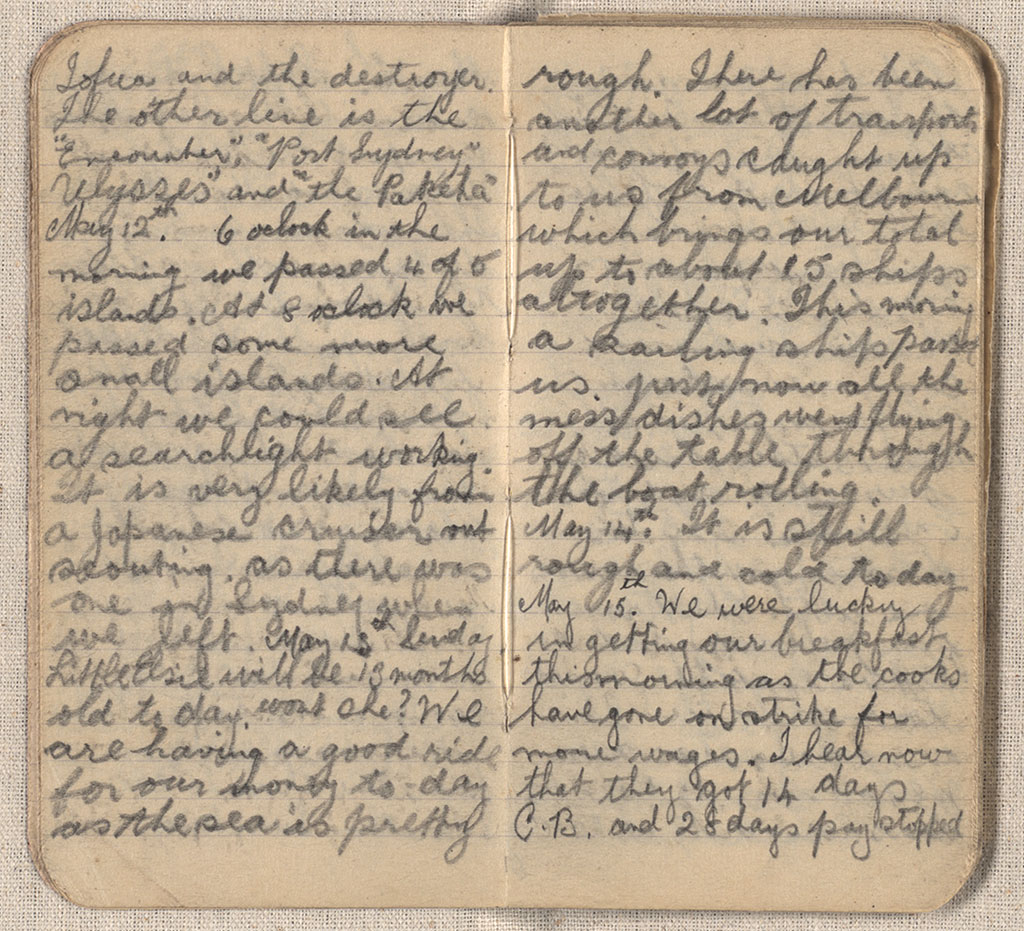 Tofua and the destroyer.
The other line is the
"Encounter", "Port Sydney"
Ulysses" and "the Pakeha"
May 12th. 6 oclock in the
morning we passed 4 of 5
islands. At 8 oclock we
passed some more
small islands. At
night we could see
a searchlight working.
It is very likely from
a Japanese cruiser out
scouting, as there was
one in Sydney when
we left. May 13th Sunday
Little Elsie will be 13 months
old to day, wont she? We
are having a good ride
for our money to-day
as the sea is pretty
rough. There has been
another lot of transports
and convoys caught up
to us from Melbourne
which brings our total
up to about 15 ships
altogether. This morning
a sailing ship passed
us. just now all the
mess dishes went flying
off the table through
the boat rolling.
May 14th. It is still
rough and cold today
May 15th. We were lucky
in getting our breakfast
this morning as the cooks
have gone on strike for
more wages. I hear now
that they got 14 days
C.B. and 28 days pay stopped